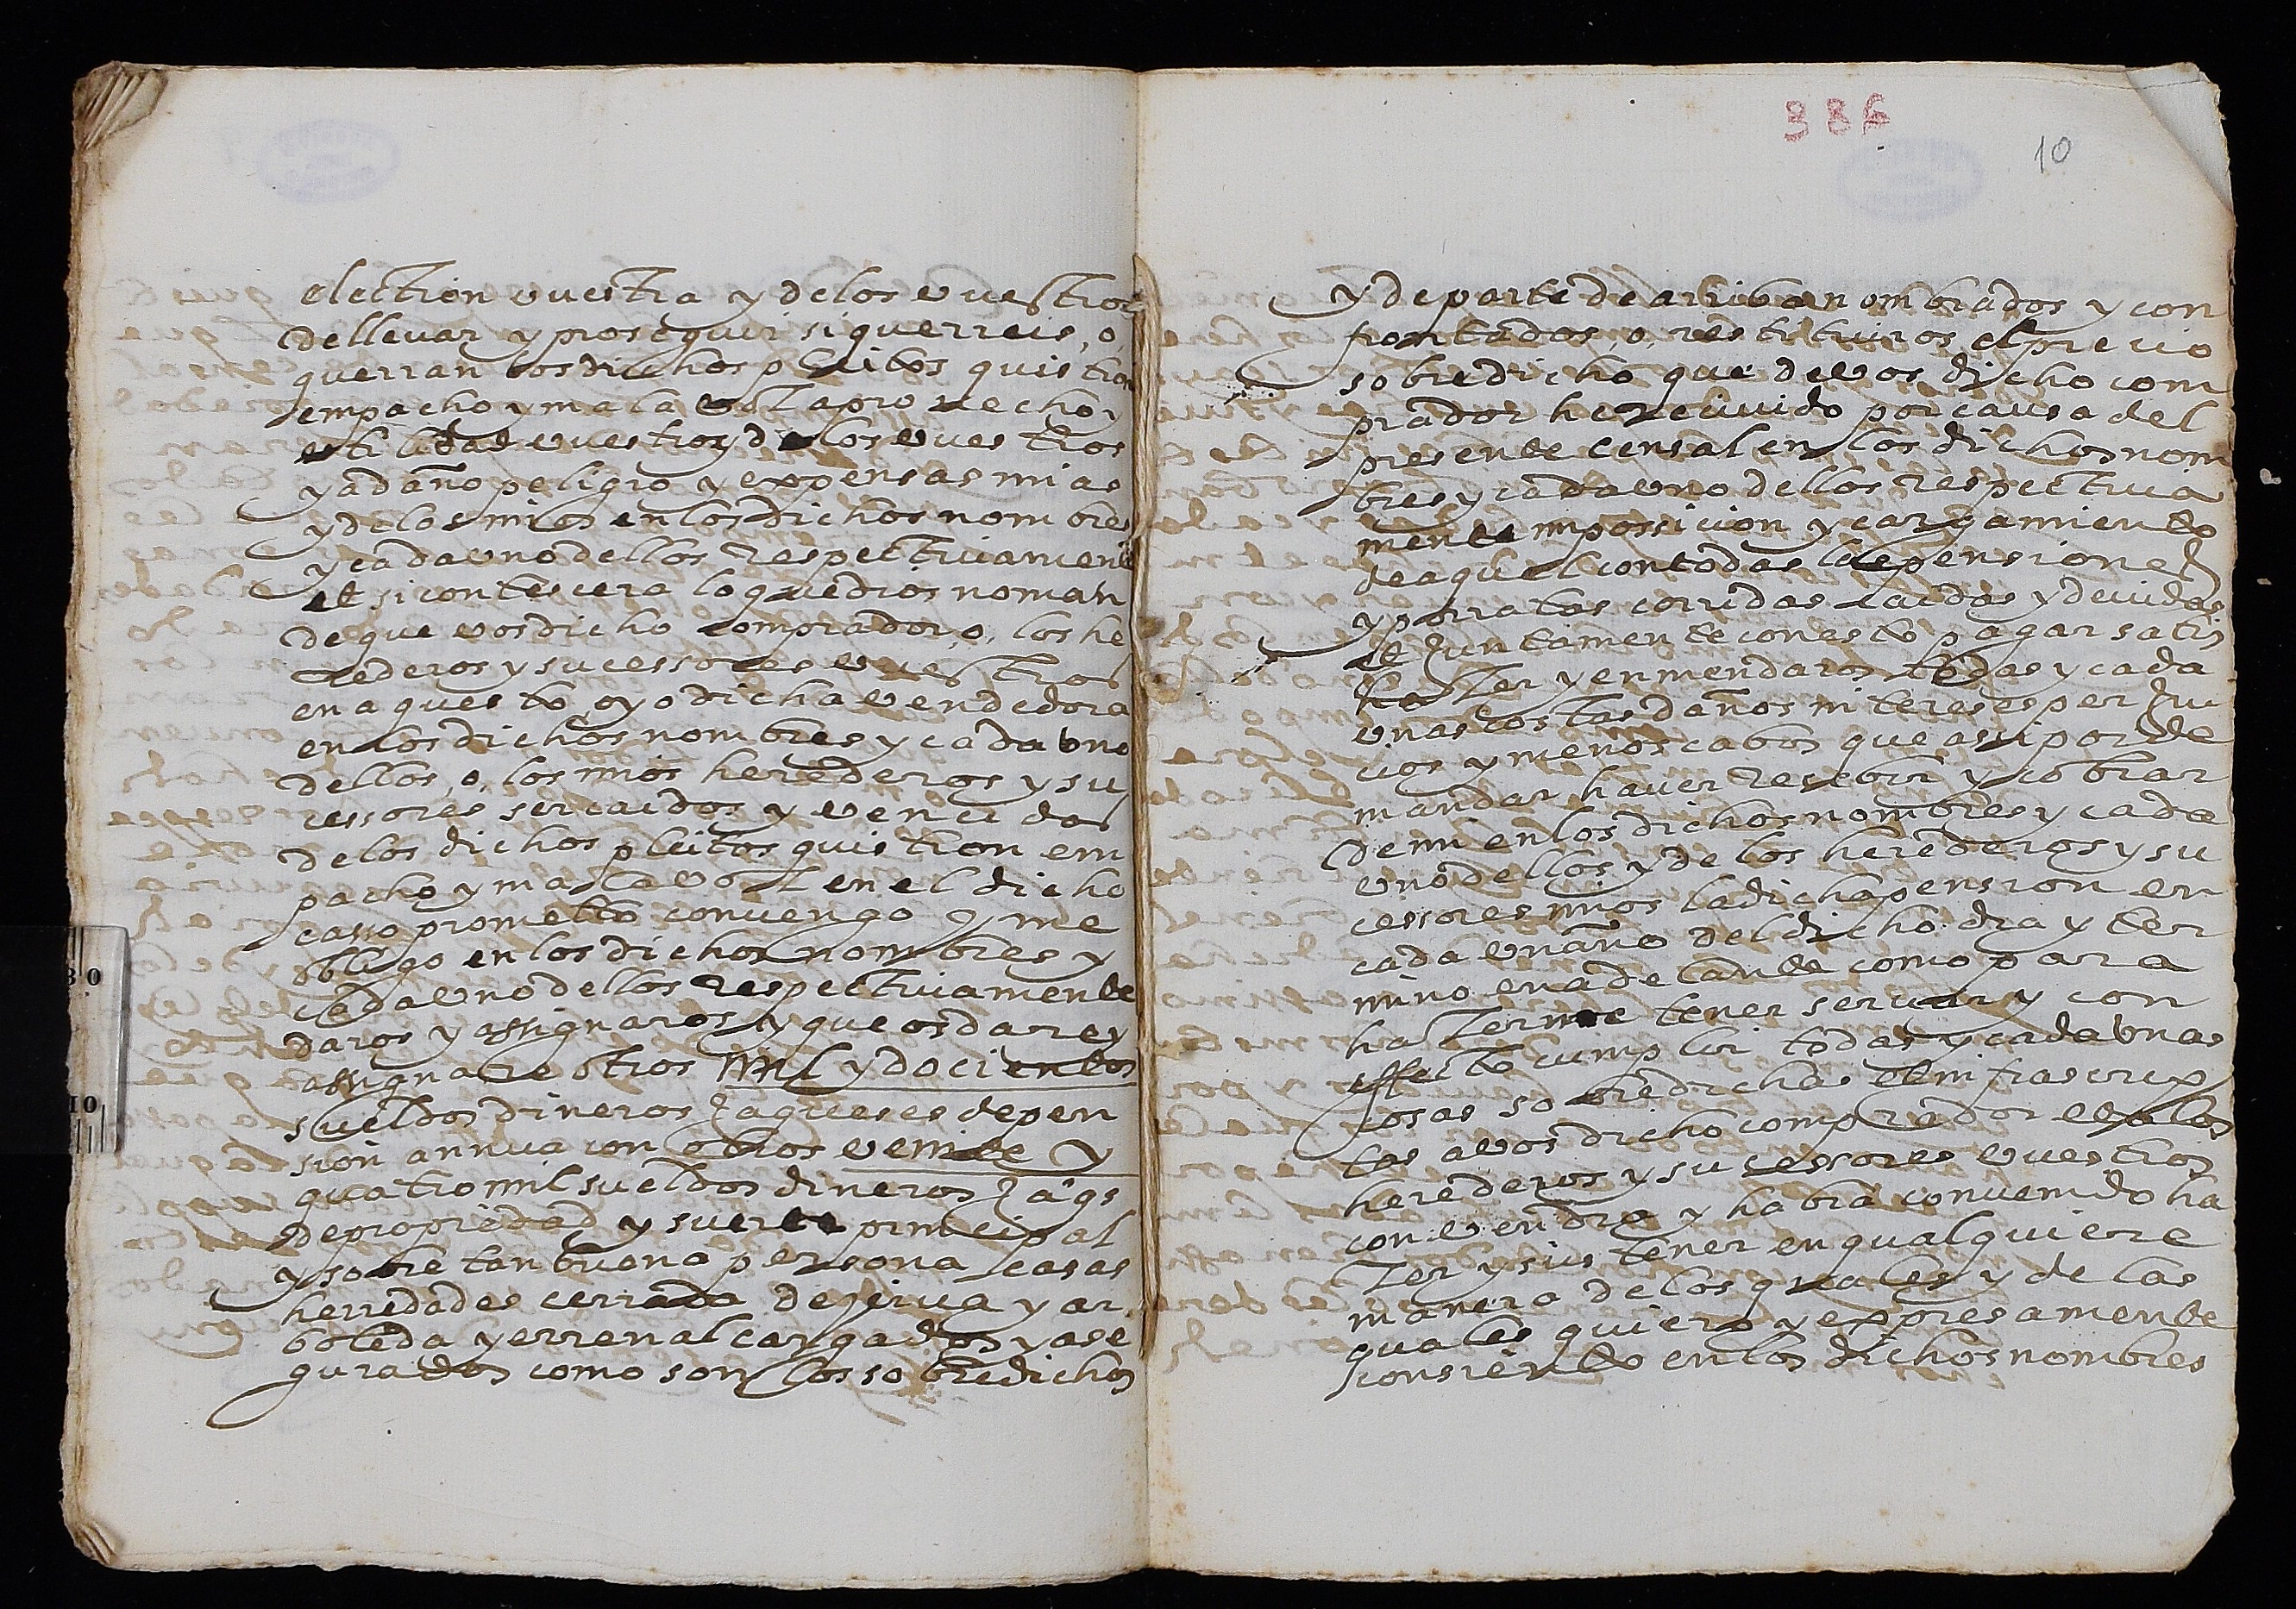 election vuestra y de los vuestros
de llevar y proseguir si querreis, o
querran los dichos pleitos quistion
empacho y mala vot a provecho y
utilidad vuestro y de los vuestros
y a daño peligro y expensas mias
y de los mios en los dichos nombres
y cada uno dellos respectivamente
et si contescera lo que dios no man
de que vos dicho comprador, o, los he
rederos y sucessores vuestros
en aquesto, o yo dicha vendedora
en los dichos nombres y cada uno
dellos, o, los mios herederos y su
cessores ser caidos y vencidos
de los dichos pleitos quistion em
pacho y mala vot en el dicho
casso prometto convengo y me
obligo en los dichos nombres y
cada uno dellos respectivamente
daros y assignaros y que os dare y
assignare otros mil y docientos
sueldos dineros Jaqueses de pen
sion annua con otros veinte y
quatro mil sueldos dineros Jaqs
de propiedad y suerte principal
y sobre tan buena persona casas
herredades cerrada de jerua y ar
boleda y errenal cargados y ase
gurados como son los sobredichos
336
10
y de parte de arriba nombrados y con
frontados, o, restituiros el precio
sobredicho que de vos dicho com
prador he recivido por causa del
presente censal en los dichos nom
bres y cada uno dellos respectiva
mente impossicion y cargamiento
de aquel con todas las pensiones
y porratas corridas caidas y devidas
et Juntamente con esto pagar satis
hazer y enmendaros todas y cada
unas costas daños intereses perJui
cios y menoscabos que assi por de
mandar haver rescebir y cobrar
de mi en los dichos nombres y cada
uno dellos y de los herederos y su
cessores mios la dicha pension en
cada un año del dicho dia y ter
mino en adelante como para
hazerme tener servar y con
effecto cumplir todas y cada unas
cosas sobredichas et infrascrip
tas a vos dicho comprador et a los
herederos y sucessores vuestros
convendra y habra convenido ha
zer y sustener en qualquiere
manera de los quales y de las
quales quiero y expresamente
consiento en los dichos nombres